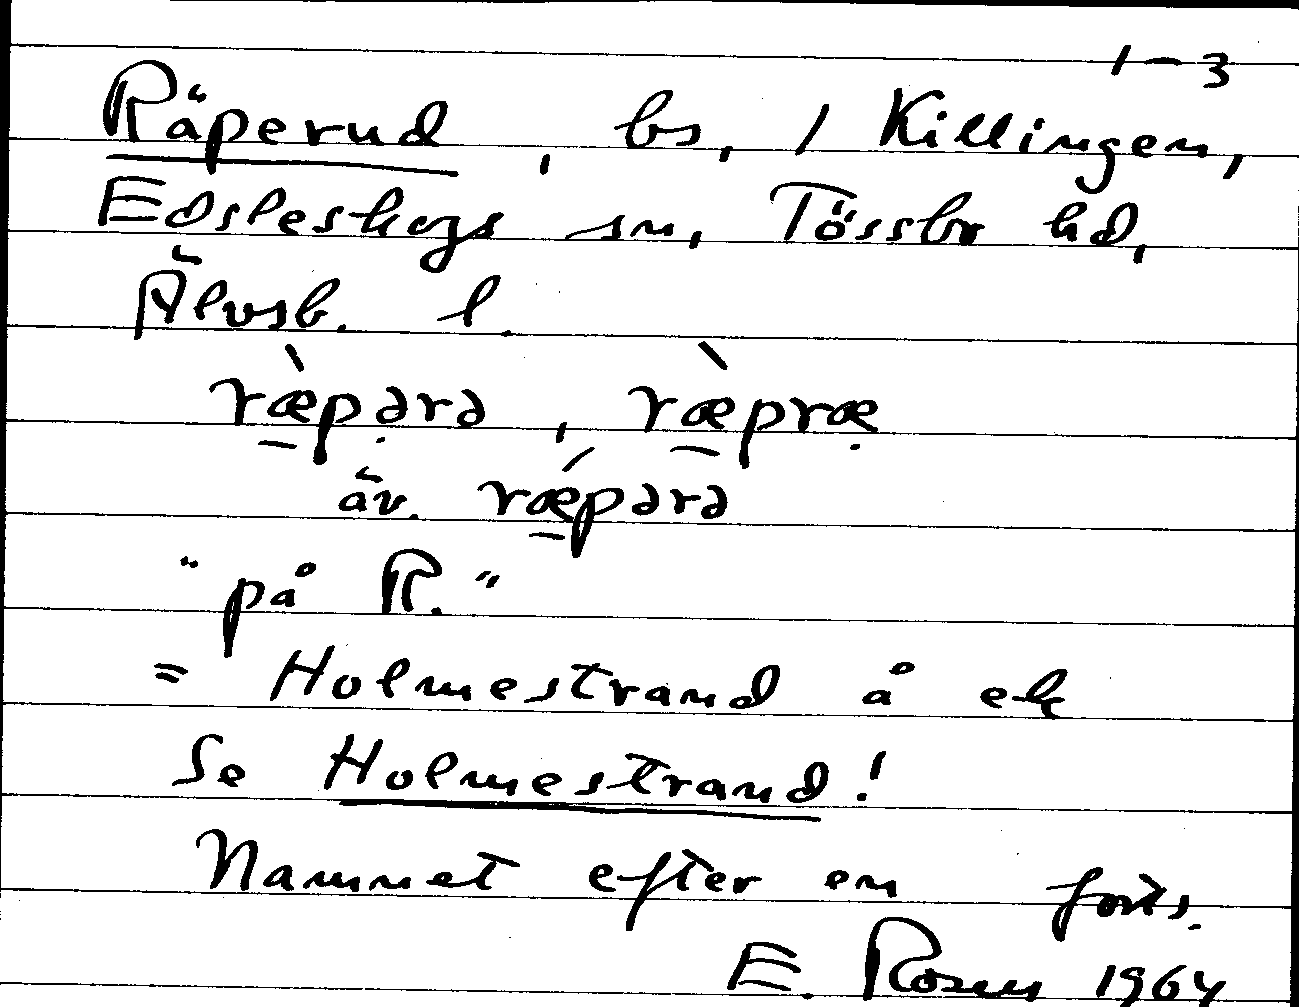 1-3
Räperud, bs, 1 Killingen,
Edsleskogs sn, Tössbo hd,
Älvsb. l.
ræ̀pərə, ræ̀præ
äv. rǽpərə
"på R."
= Holmestrand å ek
Se Holmestrand!
Namnet efter en forts.
E. Rosén 1964